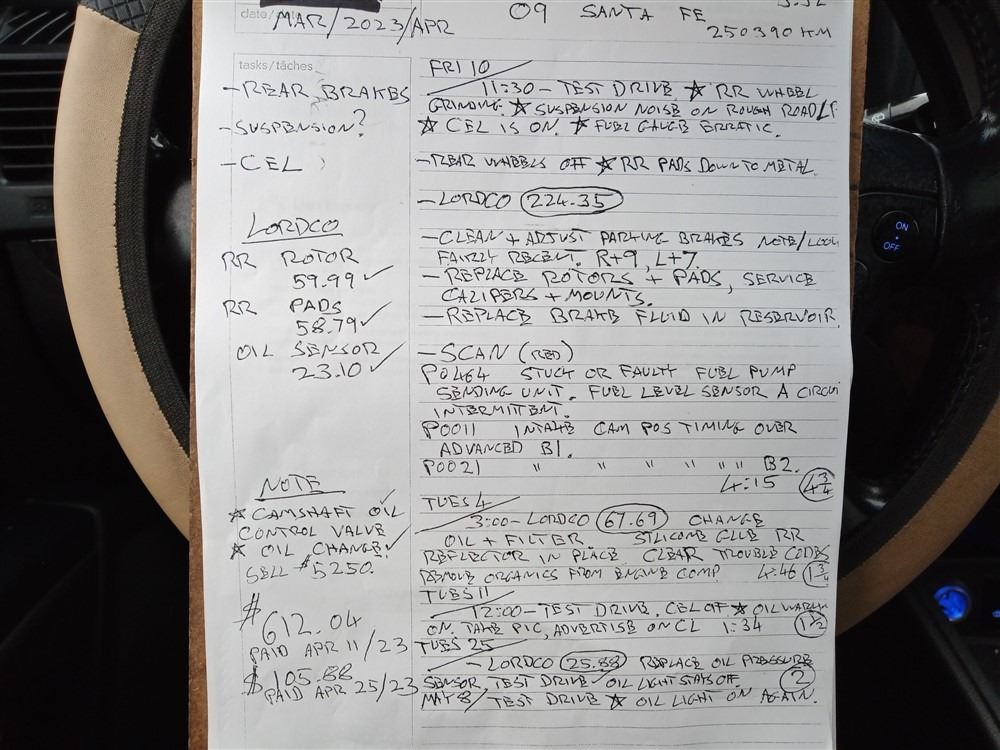 09 SANTA FE
date/date
MAR/2023/APR
250390 KM
tasks/tâches
- REAR BRAKES
- SUSPENSION?
- CEL
LORDCO
RR ROTOR
59.99 ✓
RR PADS
58.79 ✓
OIL SENSOR
23.10 ✓
NOTE
☆ CAMSHAFT OIL ✓
CONTROL VALVE
☆ OIL CHANGE ✓
SELL $5250.
$612.04
PAID APR 11/23
$105.88
PAID APR 25/23
FRI 10
11:30 - TEST DRIVE ☆ RR WHEEL
GRINDING. ☆ SUSPENSION NOISE ON ROUGH ROAD
☆ CEL IS ON. ☆ FUEL GAUGE ERRATIC.
- REAR WHEELS OFF ☆ RR PADS DOWN TO METAL.
- LORDCO 224.35
- CLEAN + ADJUST PARKING BRAKES NOTE/LOOK
FAIRLY RECENT. R+9, L+7.
- REPLACE ROTORS + PADS, SERVICE
CALIPERS + MOUNTS.
- REPLACE BRAKE FLUID IN RESERVOIR.
- SCAN (RED)
P0464 STUCK OR FAULTY FUEL PUMP
SENDING UNIT. FUEL LEVEL SENSOR A CIRCUI
INTERMITTENT.
P0011 INTAKE CAM POS TIMING OVER
ADVANCED B1.
P0021 " " " " " " B2.
4:15 4 3/4
TUES 4
3:00 - LORDCO 67.69 CHANGE
OIL + FILTER SILICONE GLUE RR
REFLECTOR IN PLACE CLEAR TROUBLE CODES
REMOVE ORGANICS FROM ENGINE COMP. 4:46 1 3/4
TUES 11
12:00 - TEST DRIVE. CEL OFF ☆ OIL WARN
ON. TAKE PIC, ADVERTISE ON CL 1:34 1 1/2
TUES 25
- LORDCO 25.88 REPLACE OIL PRESSURE
SENSOR, TEST DRIVE ✓ OIL LIGHT STAYS OFF. 2
MAY 8/ TEST DRIVE ☆ OIL LIGHT ON AGAIN.
ON
OFF